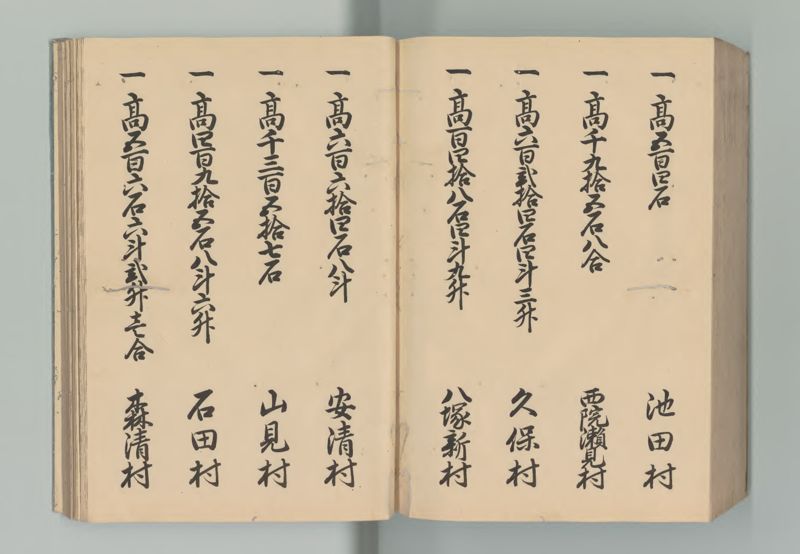 一 高五百四石 池田村
一 高千九拾五石八合 西院瀬見村
一 高六百弐拾四石四斗三升 久保村
一 高百四拾八石四斗九升 八塚新村
一 高六百六拾四石八斗 安清村
一 高千三百五拾七石 山見村
一 高四百九拾五石八斗六升 石田村
一 高五百六石六斗弐升壱合 森清村